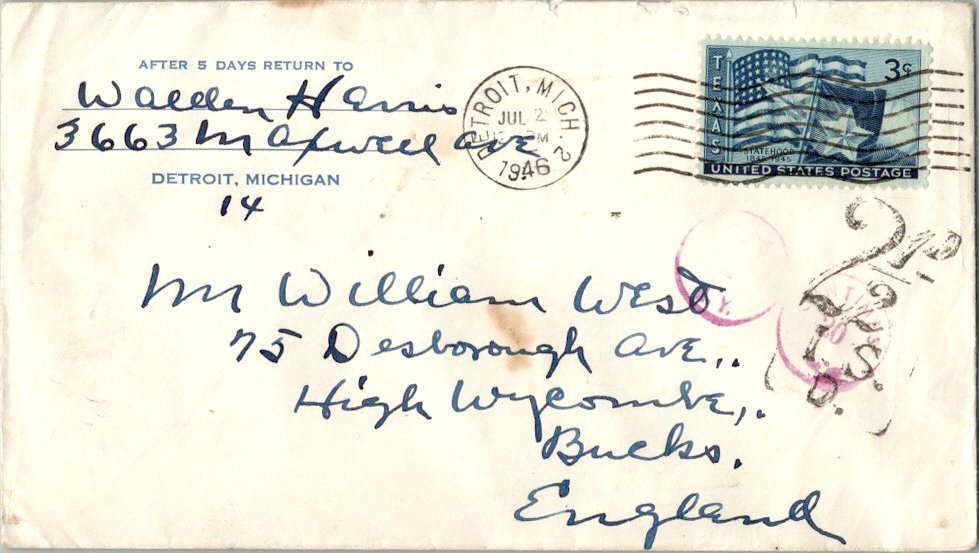 AFTER 5 DAYS RETURN TO
Walden Harris
3663 Maxwell Ave
DETROIT, MICHIGAN
14
DETROIT, MICH. 2
JUL 2
PM
1946
TEXAS
3¢
STATEHOOD
1845 1945
UNITED STATES POSTAGE
2 1/2 D
I.S.
D.
Y.
Mr William West
75 Desborough Ave.,.
High Wycombe,.
Bucks.
England